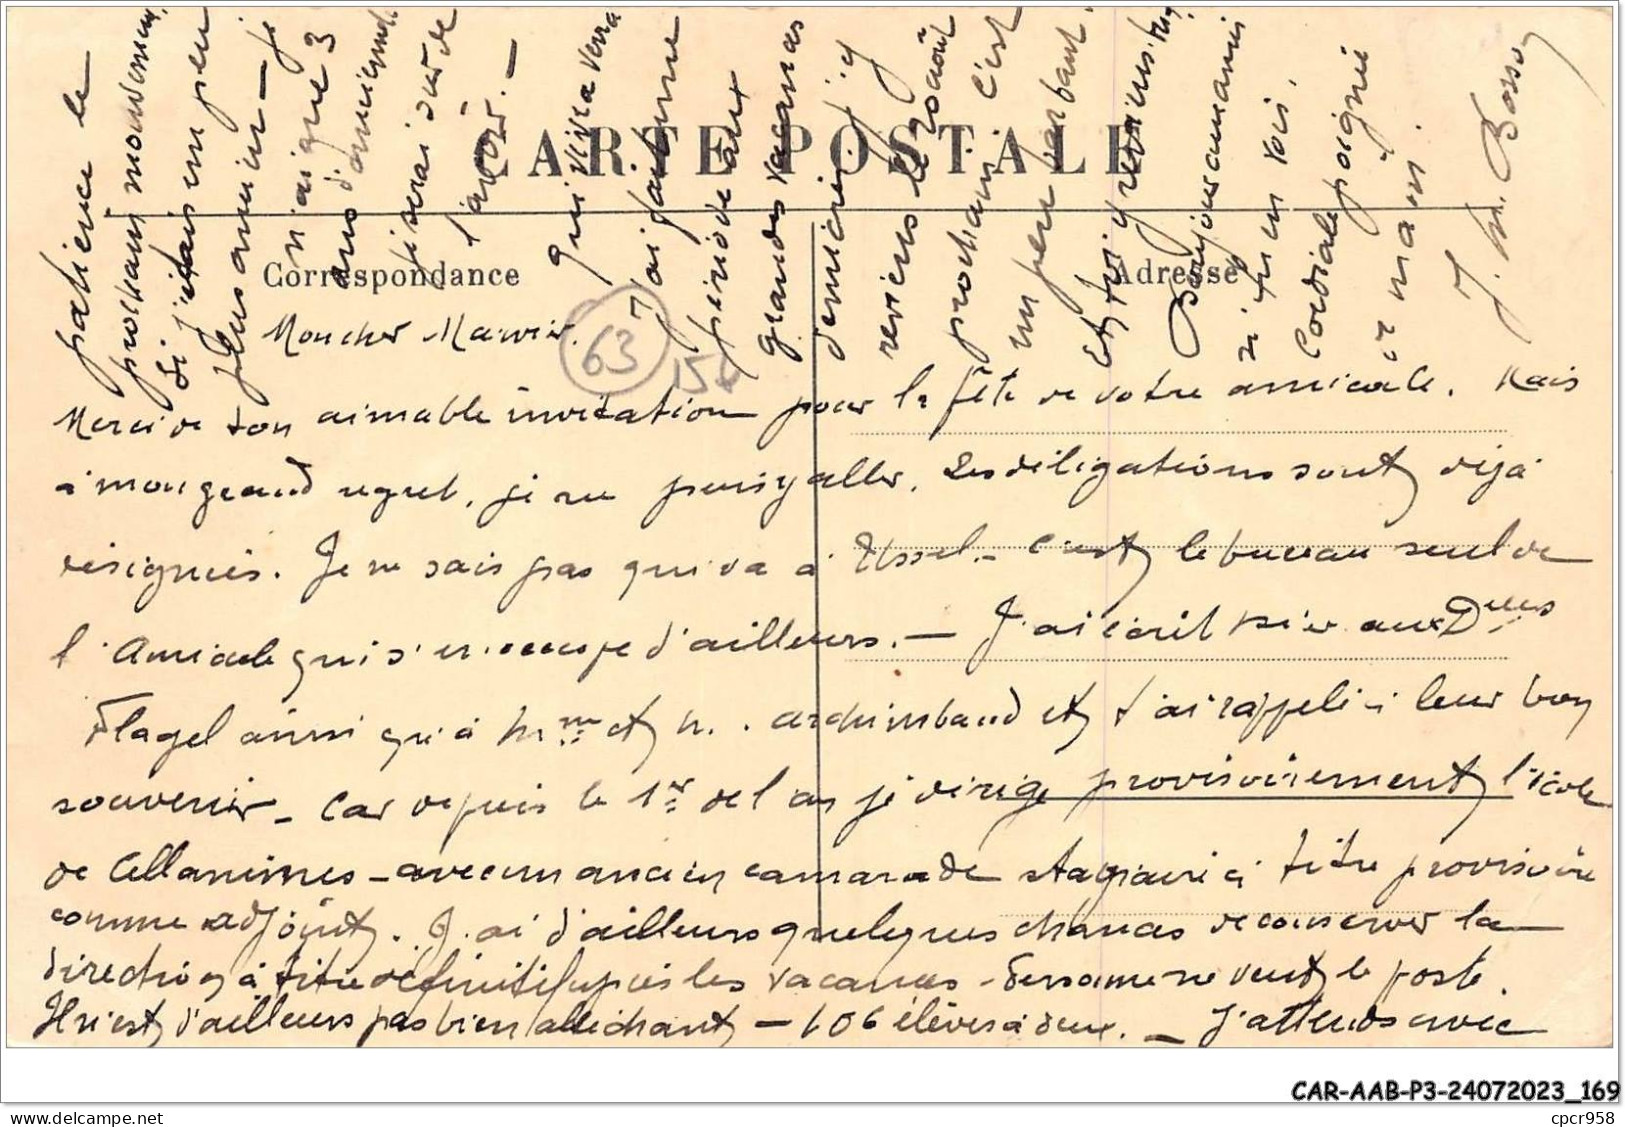 CARTE POSTALE
Correspondance
Adresse
Mon cher Marcir.
63
15
Merci de ton aimable invitation pour la fête de votre amicale. Mais
à mon grand regret, je ne puis y aller. Les délégations sont déjà
désignées. Je ne sais pas qui va à Ussel. - C'est le bureau seul de
l'Amicale qui s'en occupe d'ailleurs. — J'ai écrit hier aux Dmes
Flagel ainsi qu'à Mme et M. Archimbaud et t'ai rappelé à leur bon
souvenir - Car depuis le 1er de l'an je dirige provisoirement l'école
de Cellamines - avec un ancien camarade stagiaire à titre provisoire
comme adjoint. J'ai d'ailleurs quelques chances de conserver la
direction à titre définitif après les vacances - Personne ne veut le poste.
Il n'est d'ailleurs pas bien alléchant — 106 élèves à deux. — J'attends avec
patience le
prochain mouvement,
Si j'étais un peu
plus ancien — je
n'ai que 3
ans d'ancienneté
je serai sûr de
l'avoir. —
Qui vivra verra
J'ai fait une
période aux
grandes vacances
dernières j'y
reviens le 20 août
prochain c'est
un peu barbant,
Et toi y
Bonjour aux amis
si tu en vois.
Cordiale poignée
de main.
J. M. Bosso
CAR-AAB-P3-24072023_169
www.delcampe.net
cpcr958